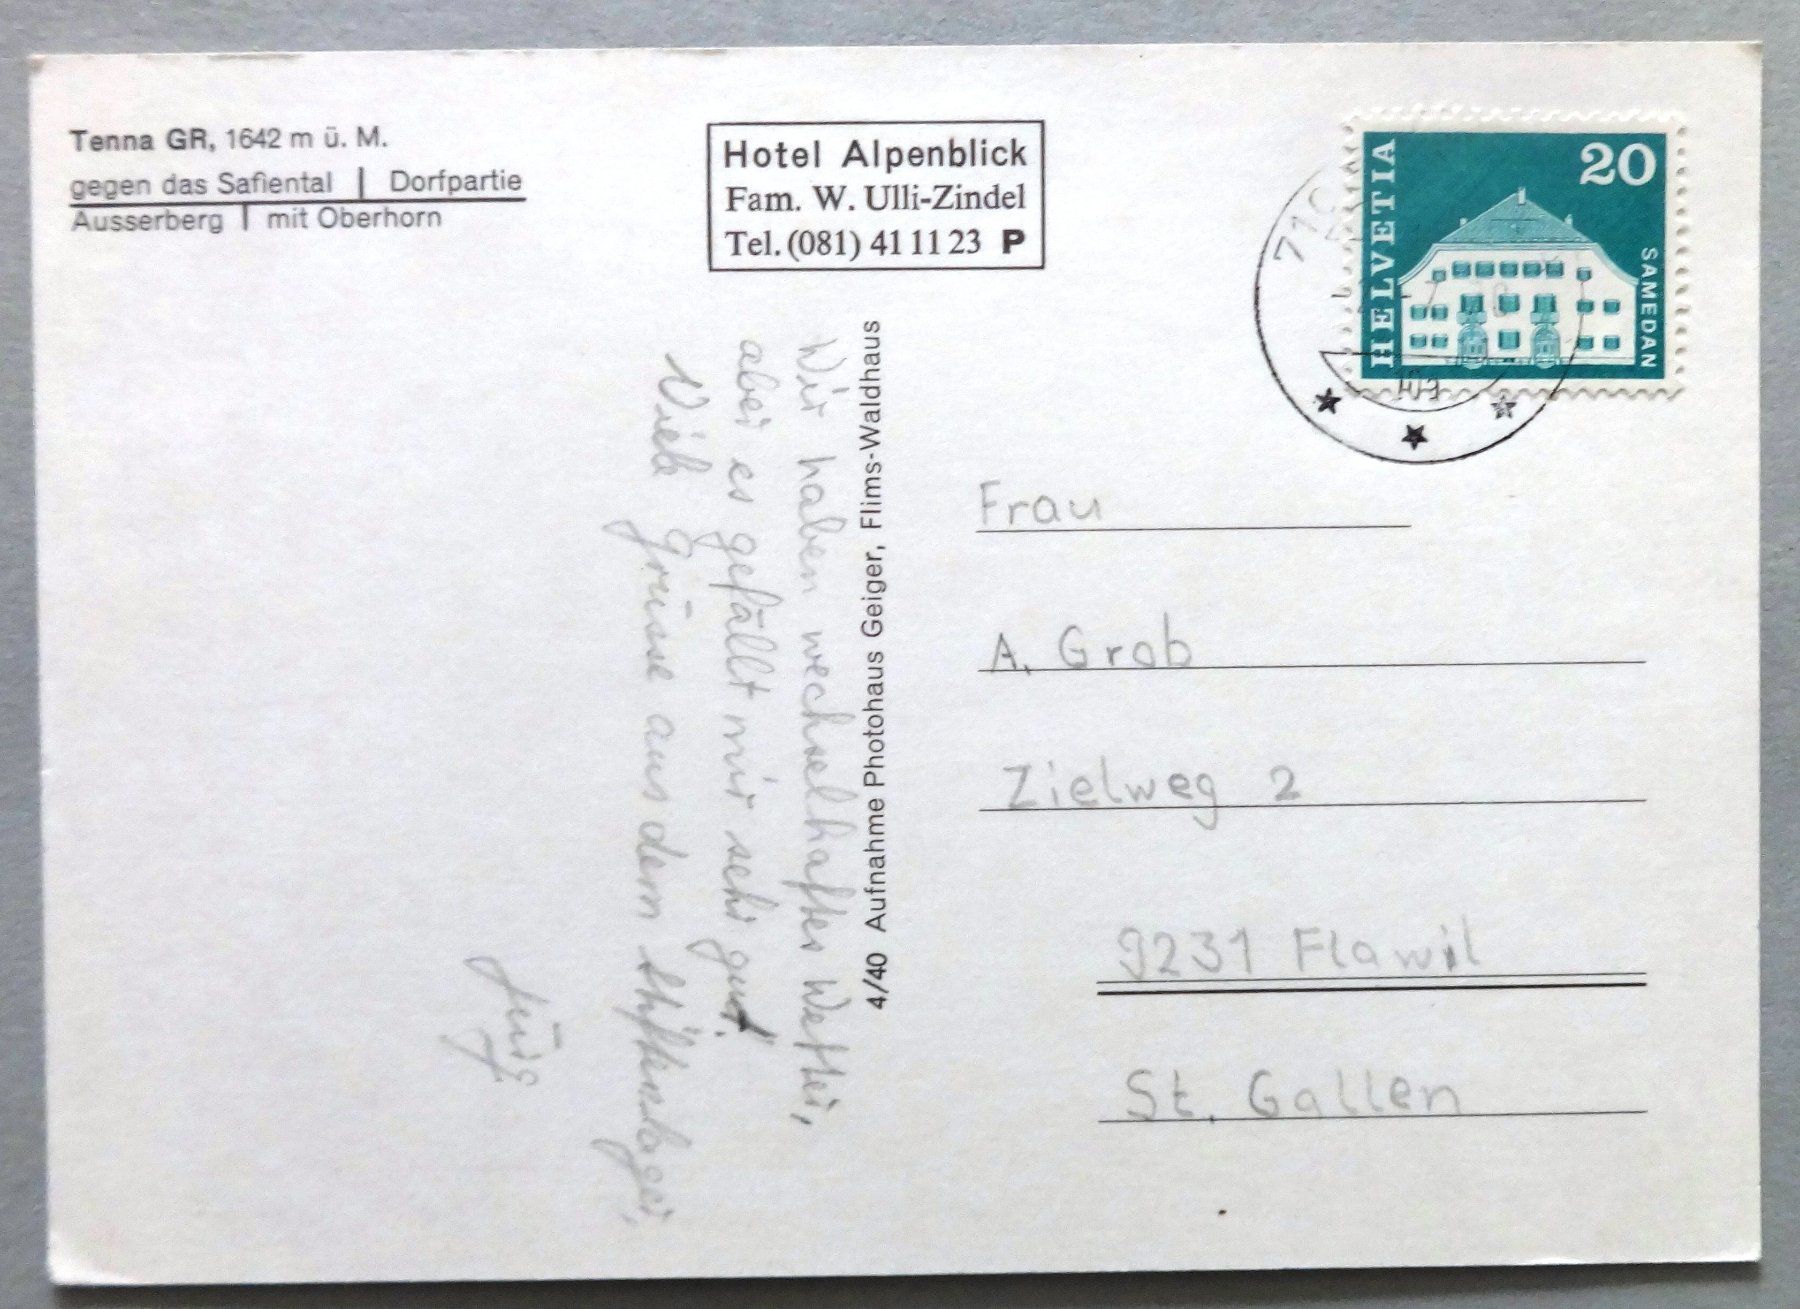 Tenna GR, 1642 m ü. M.
gegen das Safiental | Dorfpartie
Ausserberg | mit Oberhorn
Hotel Alpenblick
Fam. W. Ulli-Zindel
Tel. (081) 41 11 23 P
HELVETIA
20
SAMEDAN
4/40 Aufnahme Photohaus Geiger, Flims-Waldhaus
Wir haben wechselhaftes Wetter,
aber es gefällt mir sehr gut.
Viele Grüsse aus dem
Frau
A. Grob
Zielweg 2
9231 Flawil
St. Gallen